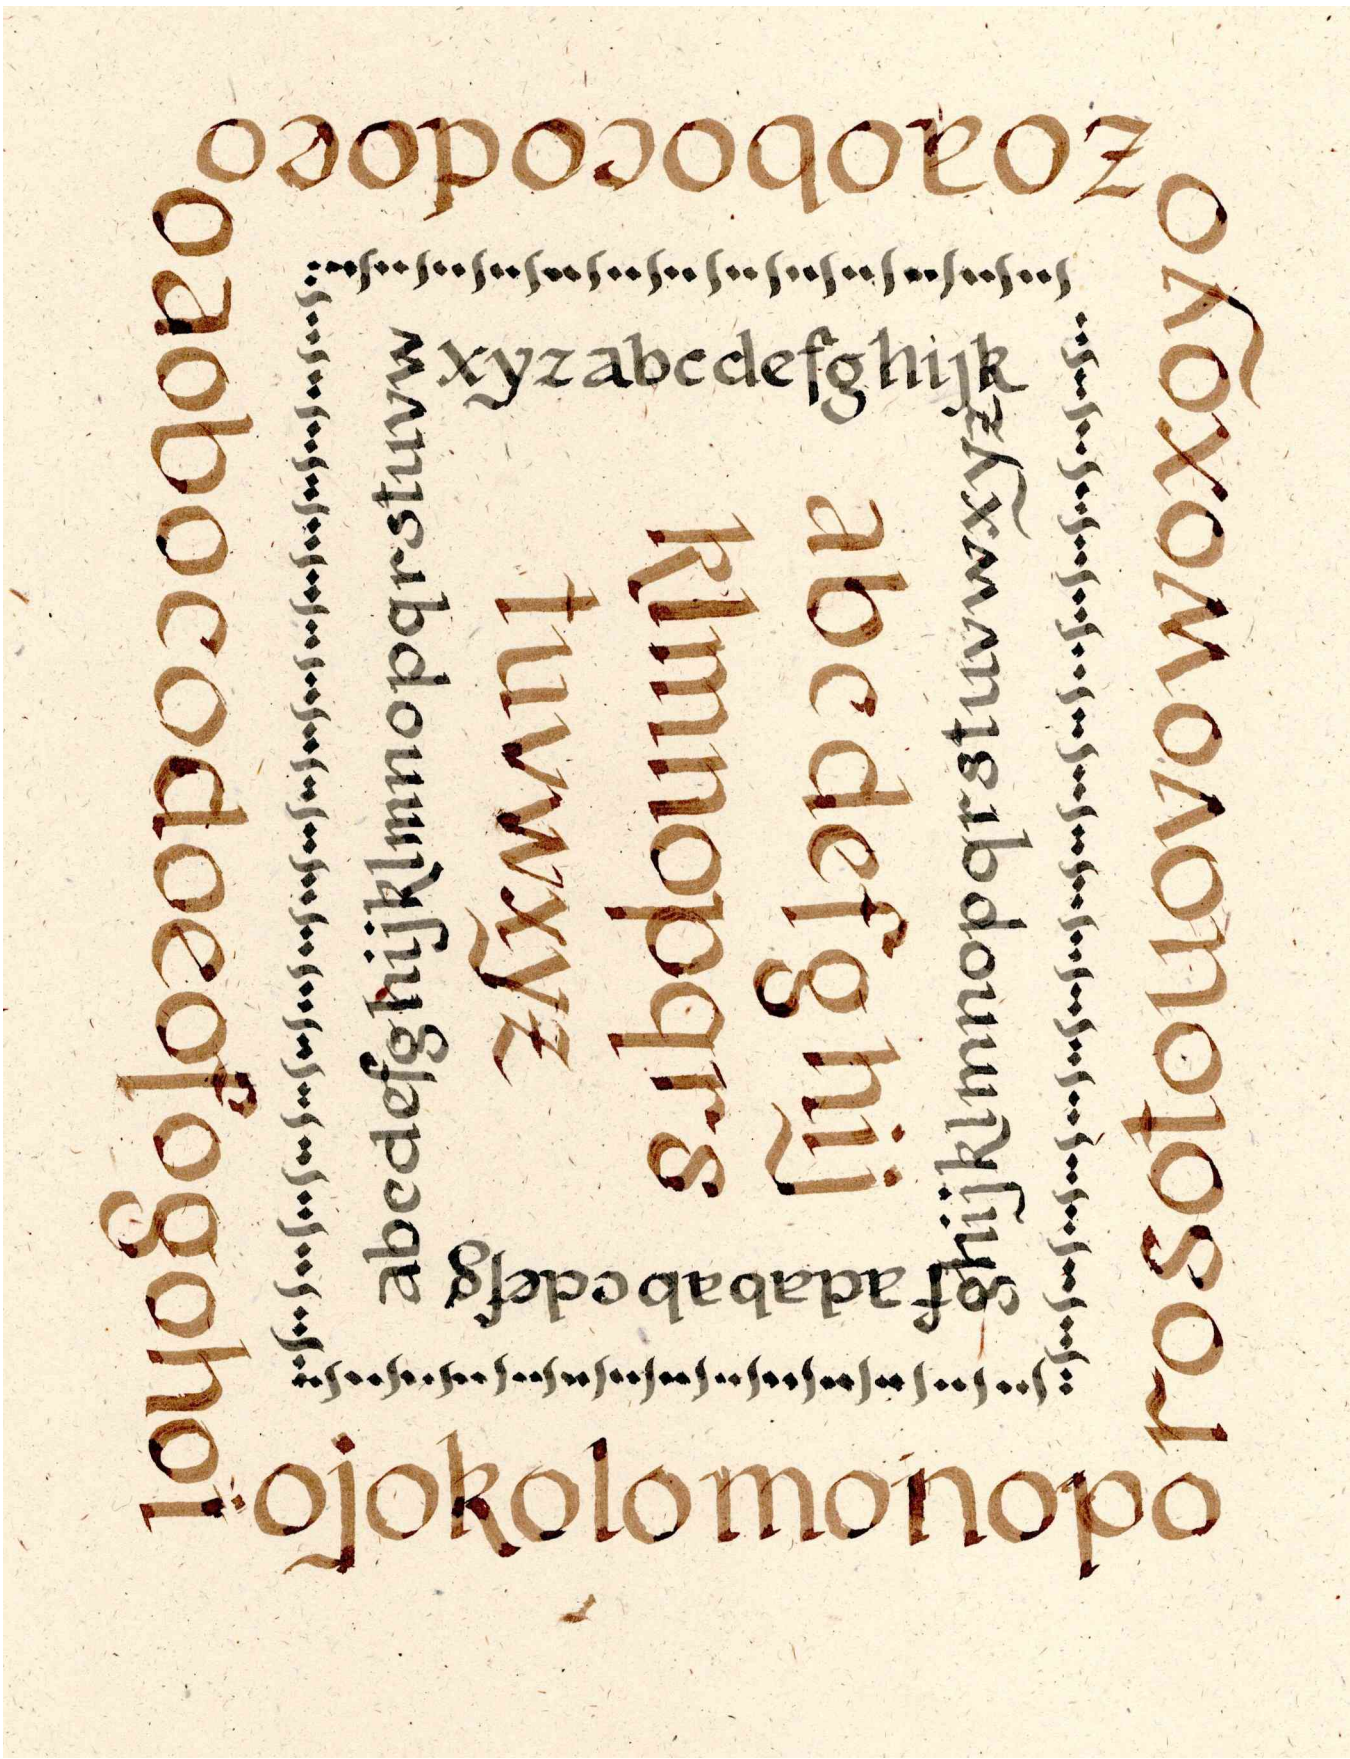 oaobocodoeofogohoi
ojokolomonopo
rosotouovowoxoyo
zoaobocodoeo
abcdefghijklmnopqrstuvw
xyzabcdefghijk
ghijklmnopqrstuvwxyz
f adababcdefg
abcdefghij
klmnopqrs
tuvwxyz